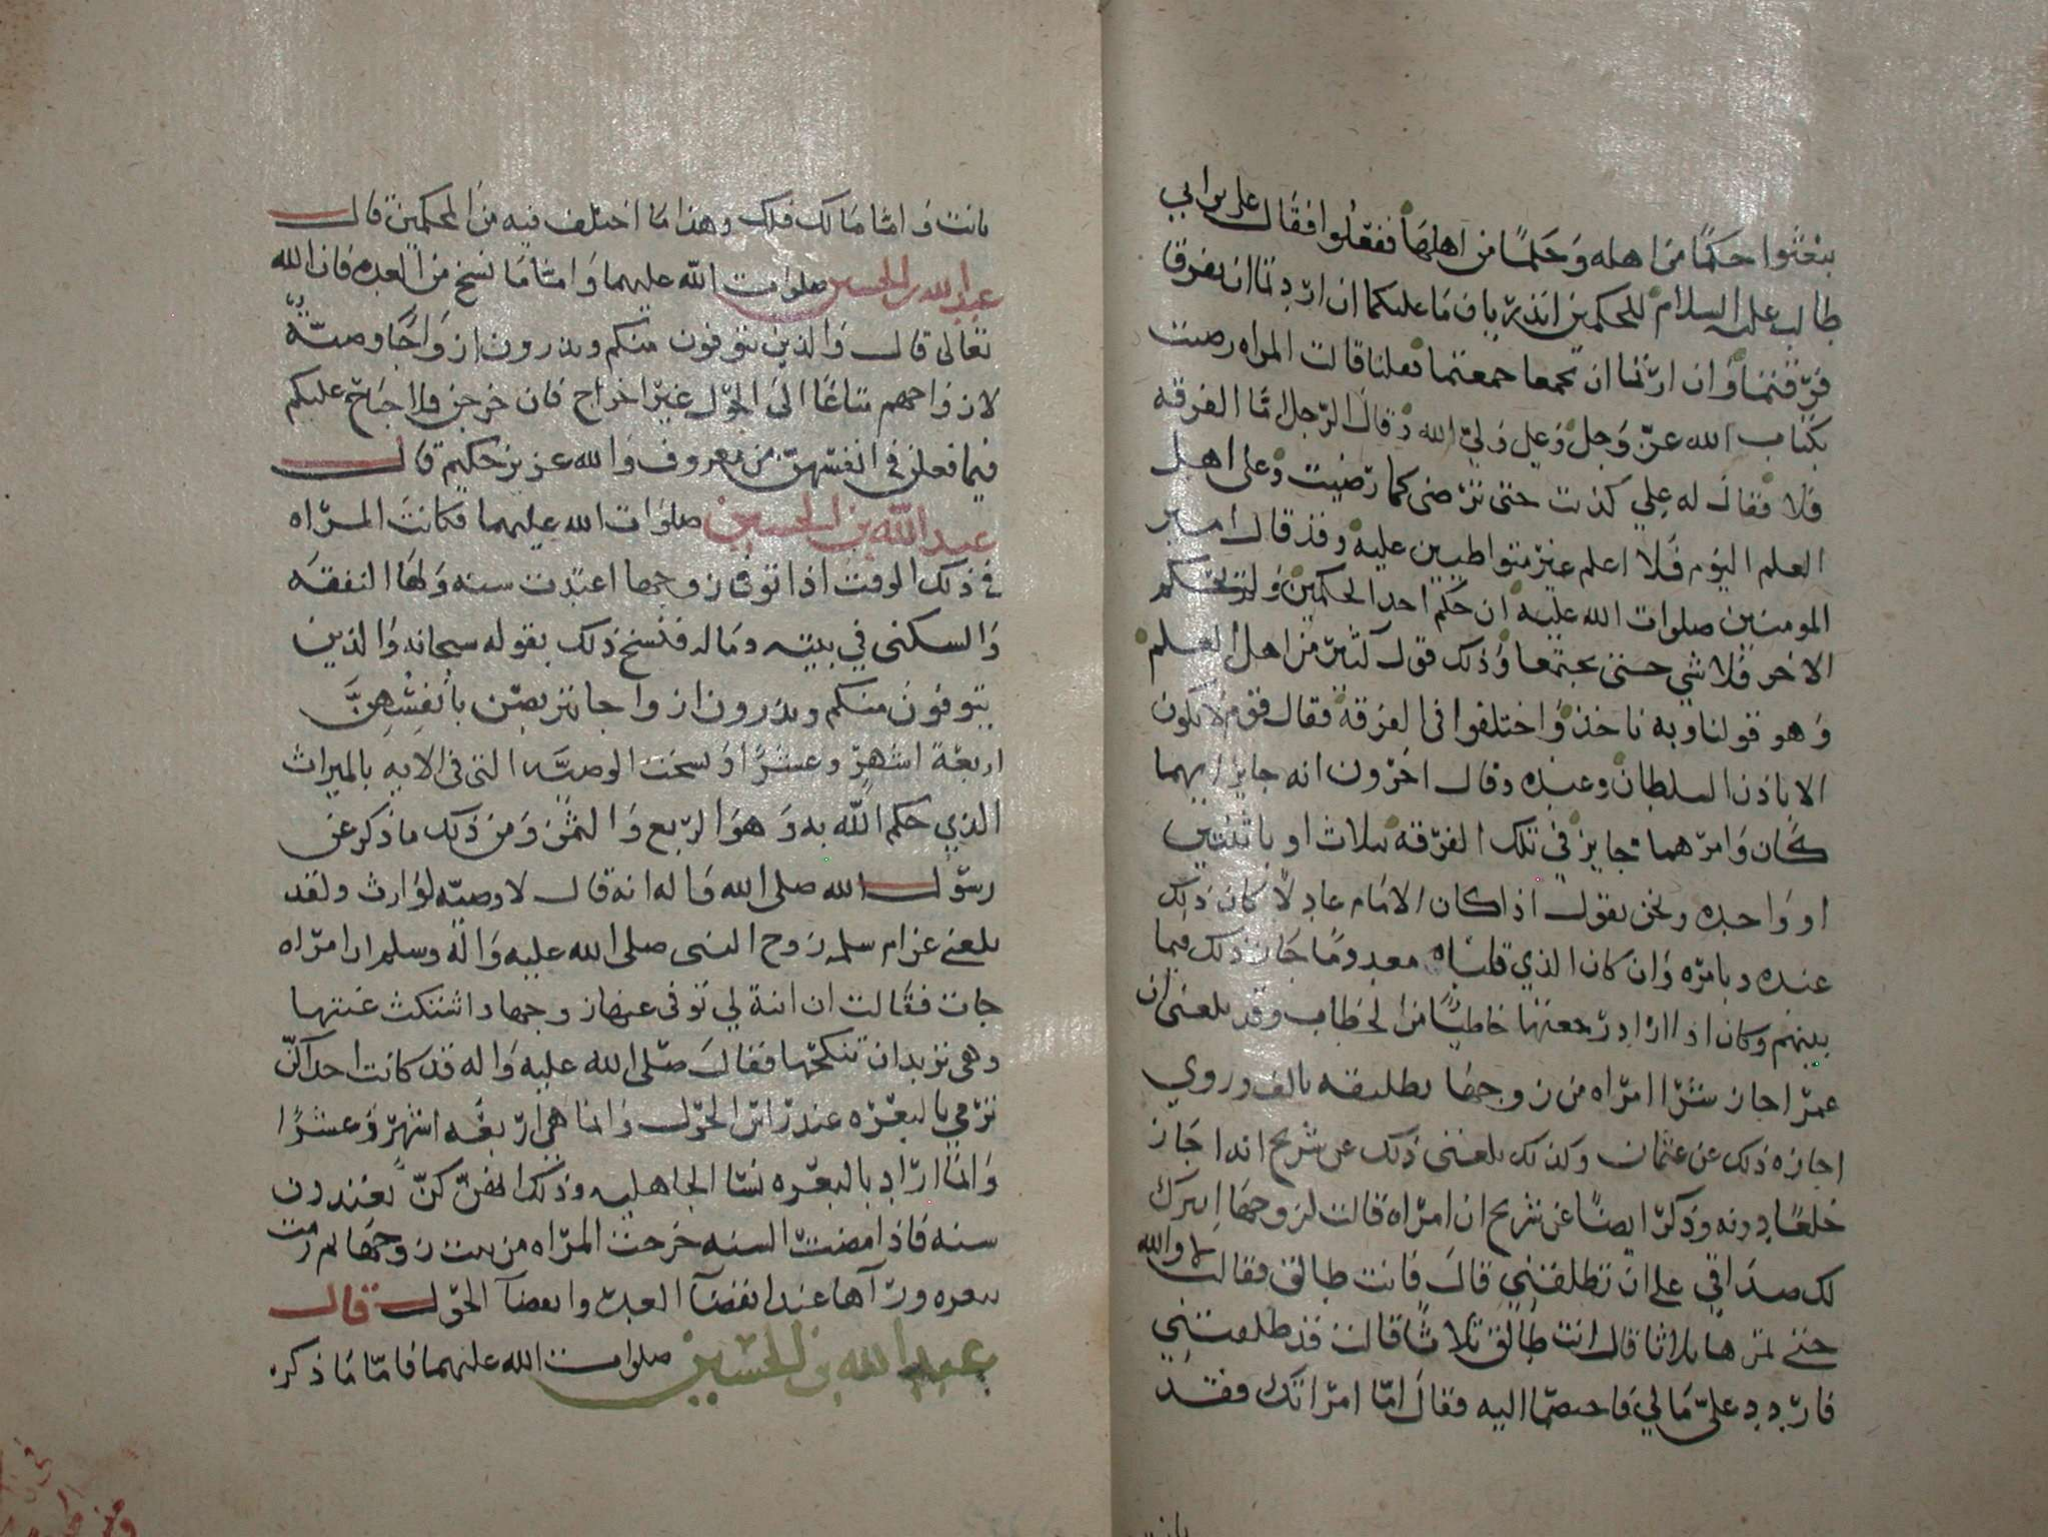 يبعثوا حكمًا من اهله وحكمًا من اهلها ففعلوا فقال علي بن ابي
طالب عليه السلام للحكمين اتدريان ما عليكما ان اردتما ان تفرقا
فرقتما وان اردتما ان تجمعا جمعتما فعلنا قالت المراه رضيت
بكتاب الله عز وجل وعلي ولي الله وقال الرجل اما الفرقه
فلا فقال له علي كذبت حتى ترضى كما رضيت وعلى اهل
العلم اليوم فلا اعلم غير متواطيين عليه وقد قال امير
المومنين صلوات الله عليه ان حكم احد الحكمين ولم يحكم
الاخر فلا شي حتى يجتمعا وذلك قول كثير من اهل العلم
وهو قولنا وبه ناخذ واختلفوا في الفرقة فقال قوم لا يكون
الا باذن السلطان وعنده وقال اخرون انه جايز ايهما
كان وامرهما جايز في تلك الفرقه بثلاث او باثنتين
او واحده ونحن نقول اذا كان الامام عادلًا كان ذلك
عنده وبامره وان كان الذي قلناه معدومًا جاز ذلك فيما
بينهم وكان اذا اراد رجعتها خاطبًا من الخطاب وقد بلغني ان
عمر اجاز شرا امراه من زوجها بطليقه بالف وروي
اجازه ذلك عن عثمان وكذلك بلغني ذلك عن شريح انه اجاز
خلعًا دونه وذكر ايضًا عن شريح ان امراه قالت لزوجها اترك
لك صداقي على ان تطلقني قال فانت طالق فقالت لا والله
حتى تمرها ثلاثا قال انت طالق ثلاثًا قالت قد طلقتني
فاردد علي مالي فاختصما اليه فقال اما امراتك فقد
بانت واما مالك فلك وهذا ما اختلف فيه من المحكمين قال
عبد الله بن الحسين صلوات الله عليهما واما ما نسخ من العده فان الله
تعالى قال والذين يتوفون منكم ويذرون ازواجًا وصيّة
لازواجهم متاعًا الى الحول غير اخراج فان خرجن فلا جناح عليكم
فيما فعلن في انفسهن من معروف والله عزيز حكيم قال
عبد الله بن الحسين صلوات الله عليهما فكانت المراه
في ذلك الوقت اذا توفي زوجها اعتدت سنه ولها النفقه
والسكنى في بيته وماله فنسخ ذلك بقوله سبحانه والذين
يتوفون منكم ويذرون ازواجا يتربصن بأنفسهنّ
اربعة اشهر وعشرًا ونسخت الوصيّه التي في الايه بالميراث
الذي حكم الله به وهو الربع والثمن ومن ذلك ما ذكر عن
رسول الله صلى الله واله انه قال لا وصيّه لوارث ولقد
بلغني عن ام سلمه زوج النبي صلى الله عليه واله وسلم ان امراه
جات فقالت ان ابنة لي توفي عنها زوجها واشتكت عينها
وهي تريد ان تنكحها فقال صلى الله عليه واله قد كانت احداكنّ
ترمي بالبعره عند راس الحول وانما هي اربعه اشهر وعشرًا
وانما اراد بالبعره نسا الجاهليه وذلك انهنّ كنّ يعتددن
سنه فاذا مضت السنه خرجت المراه من بيت زوجها ثم رمت
ببعره ورآها عند انقضآ العده وانقضآ الحول قال
عبد الله بن الحسين صلوات الله عليهما فاما ما ذكره